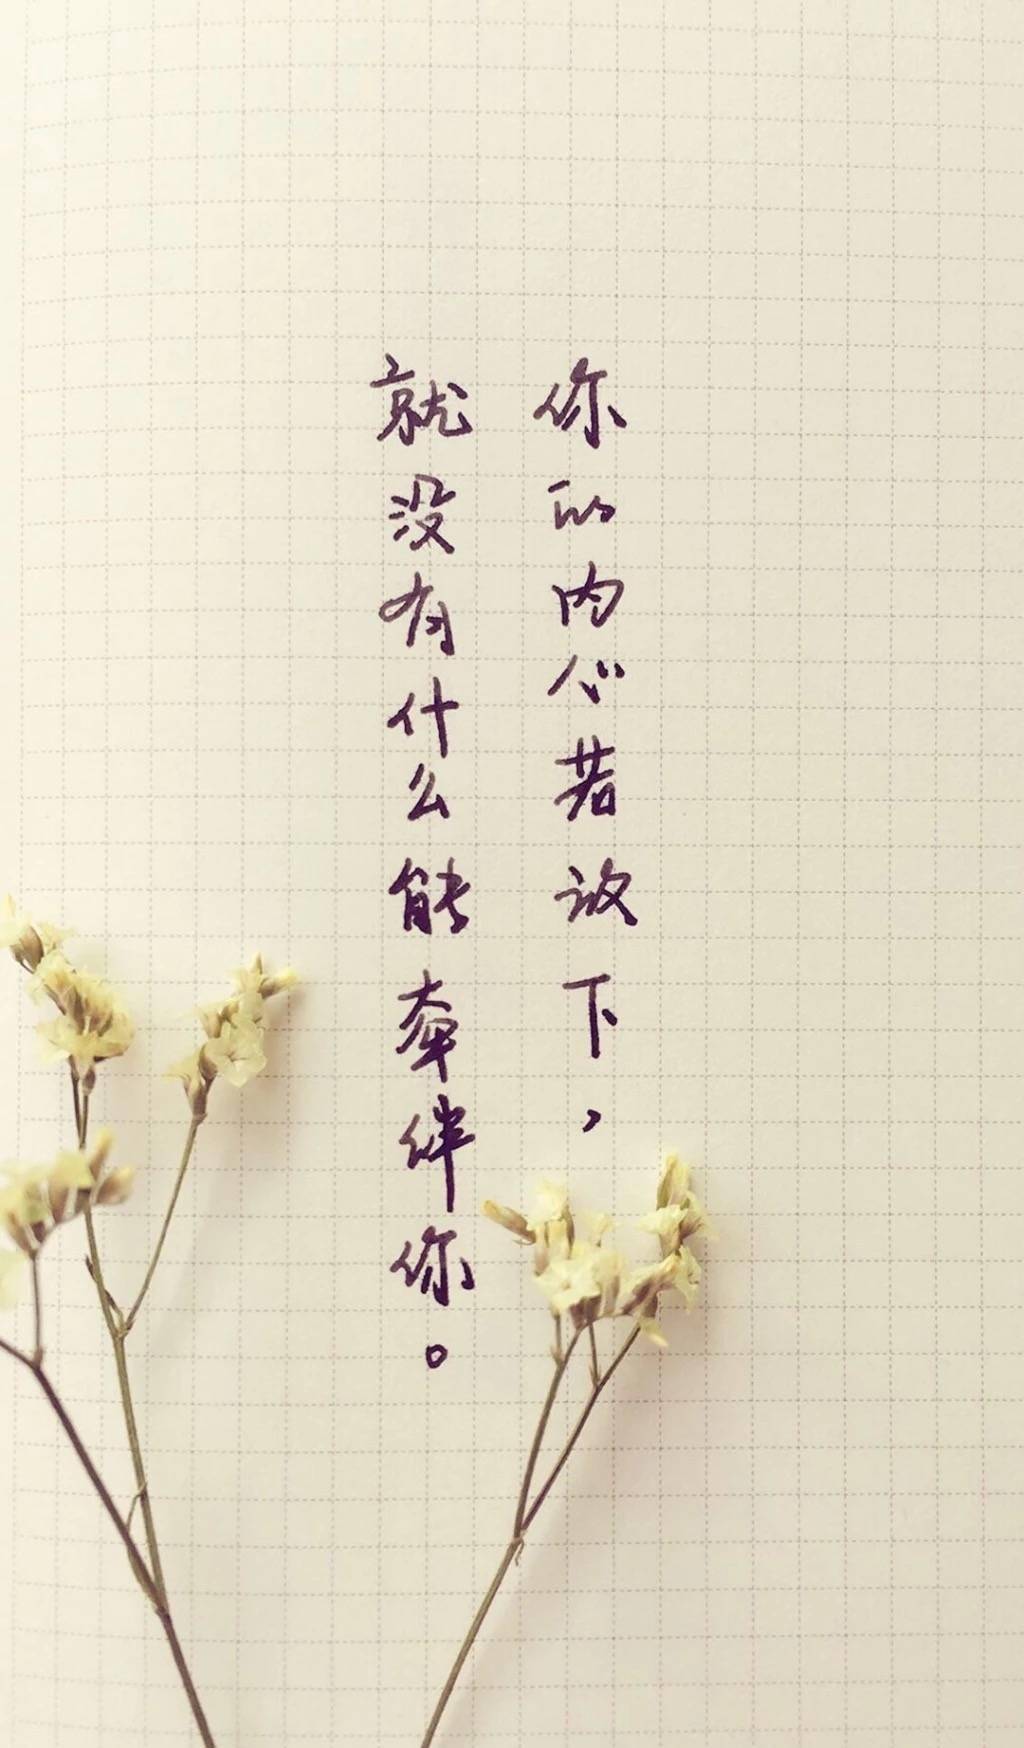 你的内心若放下，
就没有什么能牵绊你。